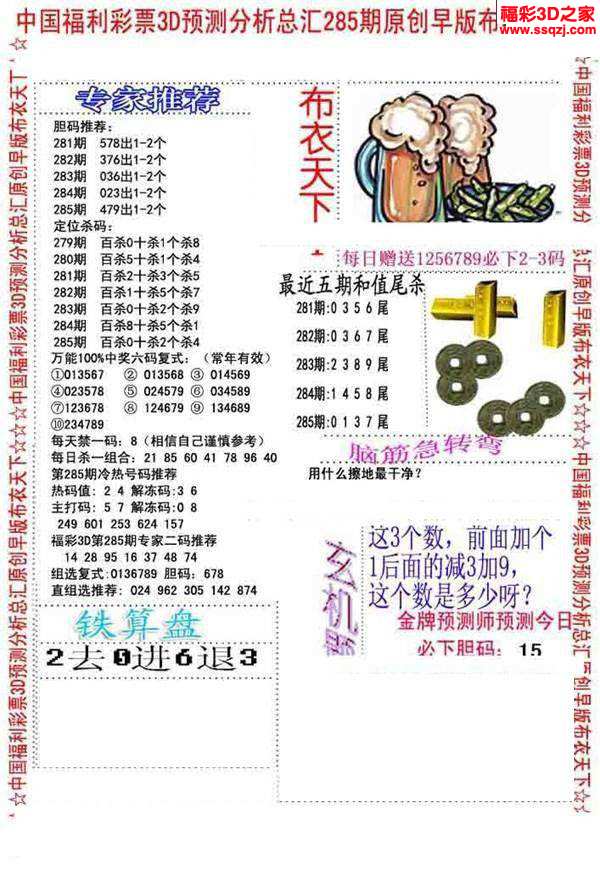 中国福利彩票3D预测分析总汇285期原创早版布
福彩3D之家
www.ssqzj.com
☆中国福利彩票3D预测分析总汇原创早版布衣天下☆☆☆中国福利彩票3D预测分析总汇原创早版布衣天下☆
专家推荐
胆码推荐：
281期 578出1-2个
282期 376出1-2个
283期 036出1-2个
284期 023出1-2个
285期 479出1-2个
定位杀码：
279期 百杀0十杀1个杀8
280期 百杀5十杀1个杀4
281期 百杀2十杀3个杀5
282期 百杀1十杀5个杀7
283期 百杀0十杀2个杀9
284期 百杀8十杀5个杀1
285期 百杀0十杀2个杀4
万能100%中奖六码复式：（常年有效）
①013567 ② 013568 ③ 014569
④023578 ⑤ 024579 ⑥ 034589
⑦123678 ⑧ 124679 ⑨ 134689
⑩234789
每天禁一码：8（相信自己谨慎参考）
每日杀一组合：21 85 60 41 78 96 40
第285期冷热号码推荐
热码值：2 4 解冻码：3 6
主打码：5 7 解冻码：0 8
249 601 253 624 157
福彩3D第285期专家二码推荐
14 28 95 16 37 48 74
组选复式：0136789 胆码：678
直组选推荐：024 962 305 142 874
铁算盘
2去0进6退3
布衣天下
每日赠送1256789必下2-3码
最近五期和值尾杀
281期:0 3 5 6 尾
282期:0 3 6 7 尾
283期:2 3 8 9 尾
284期:1 4 5 8 尾
285期:0 1 3 7 尾
脑筋急转弯
用什么擦地最干净？
玄机题
这3个数，前面加个
1后面的减3加9，
这个数是多少呀？
金牌预测师预测今日
必下胆码： 15
☆中国福利彩票3D预测分
总汇原创早版布衣天下☆☆☆中国福利彩票3D预测分析总汇原创早版布衣天下☆